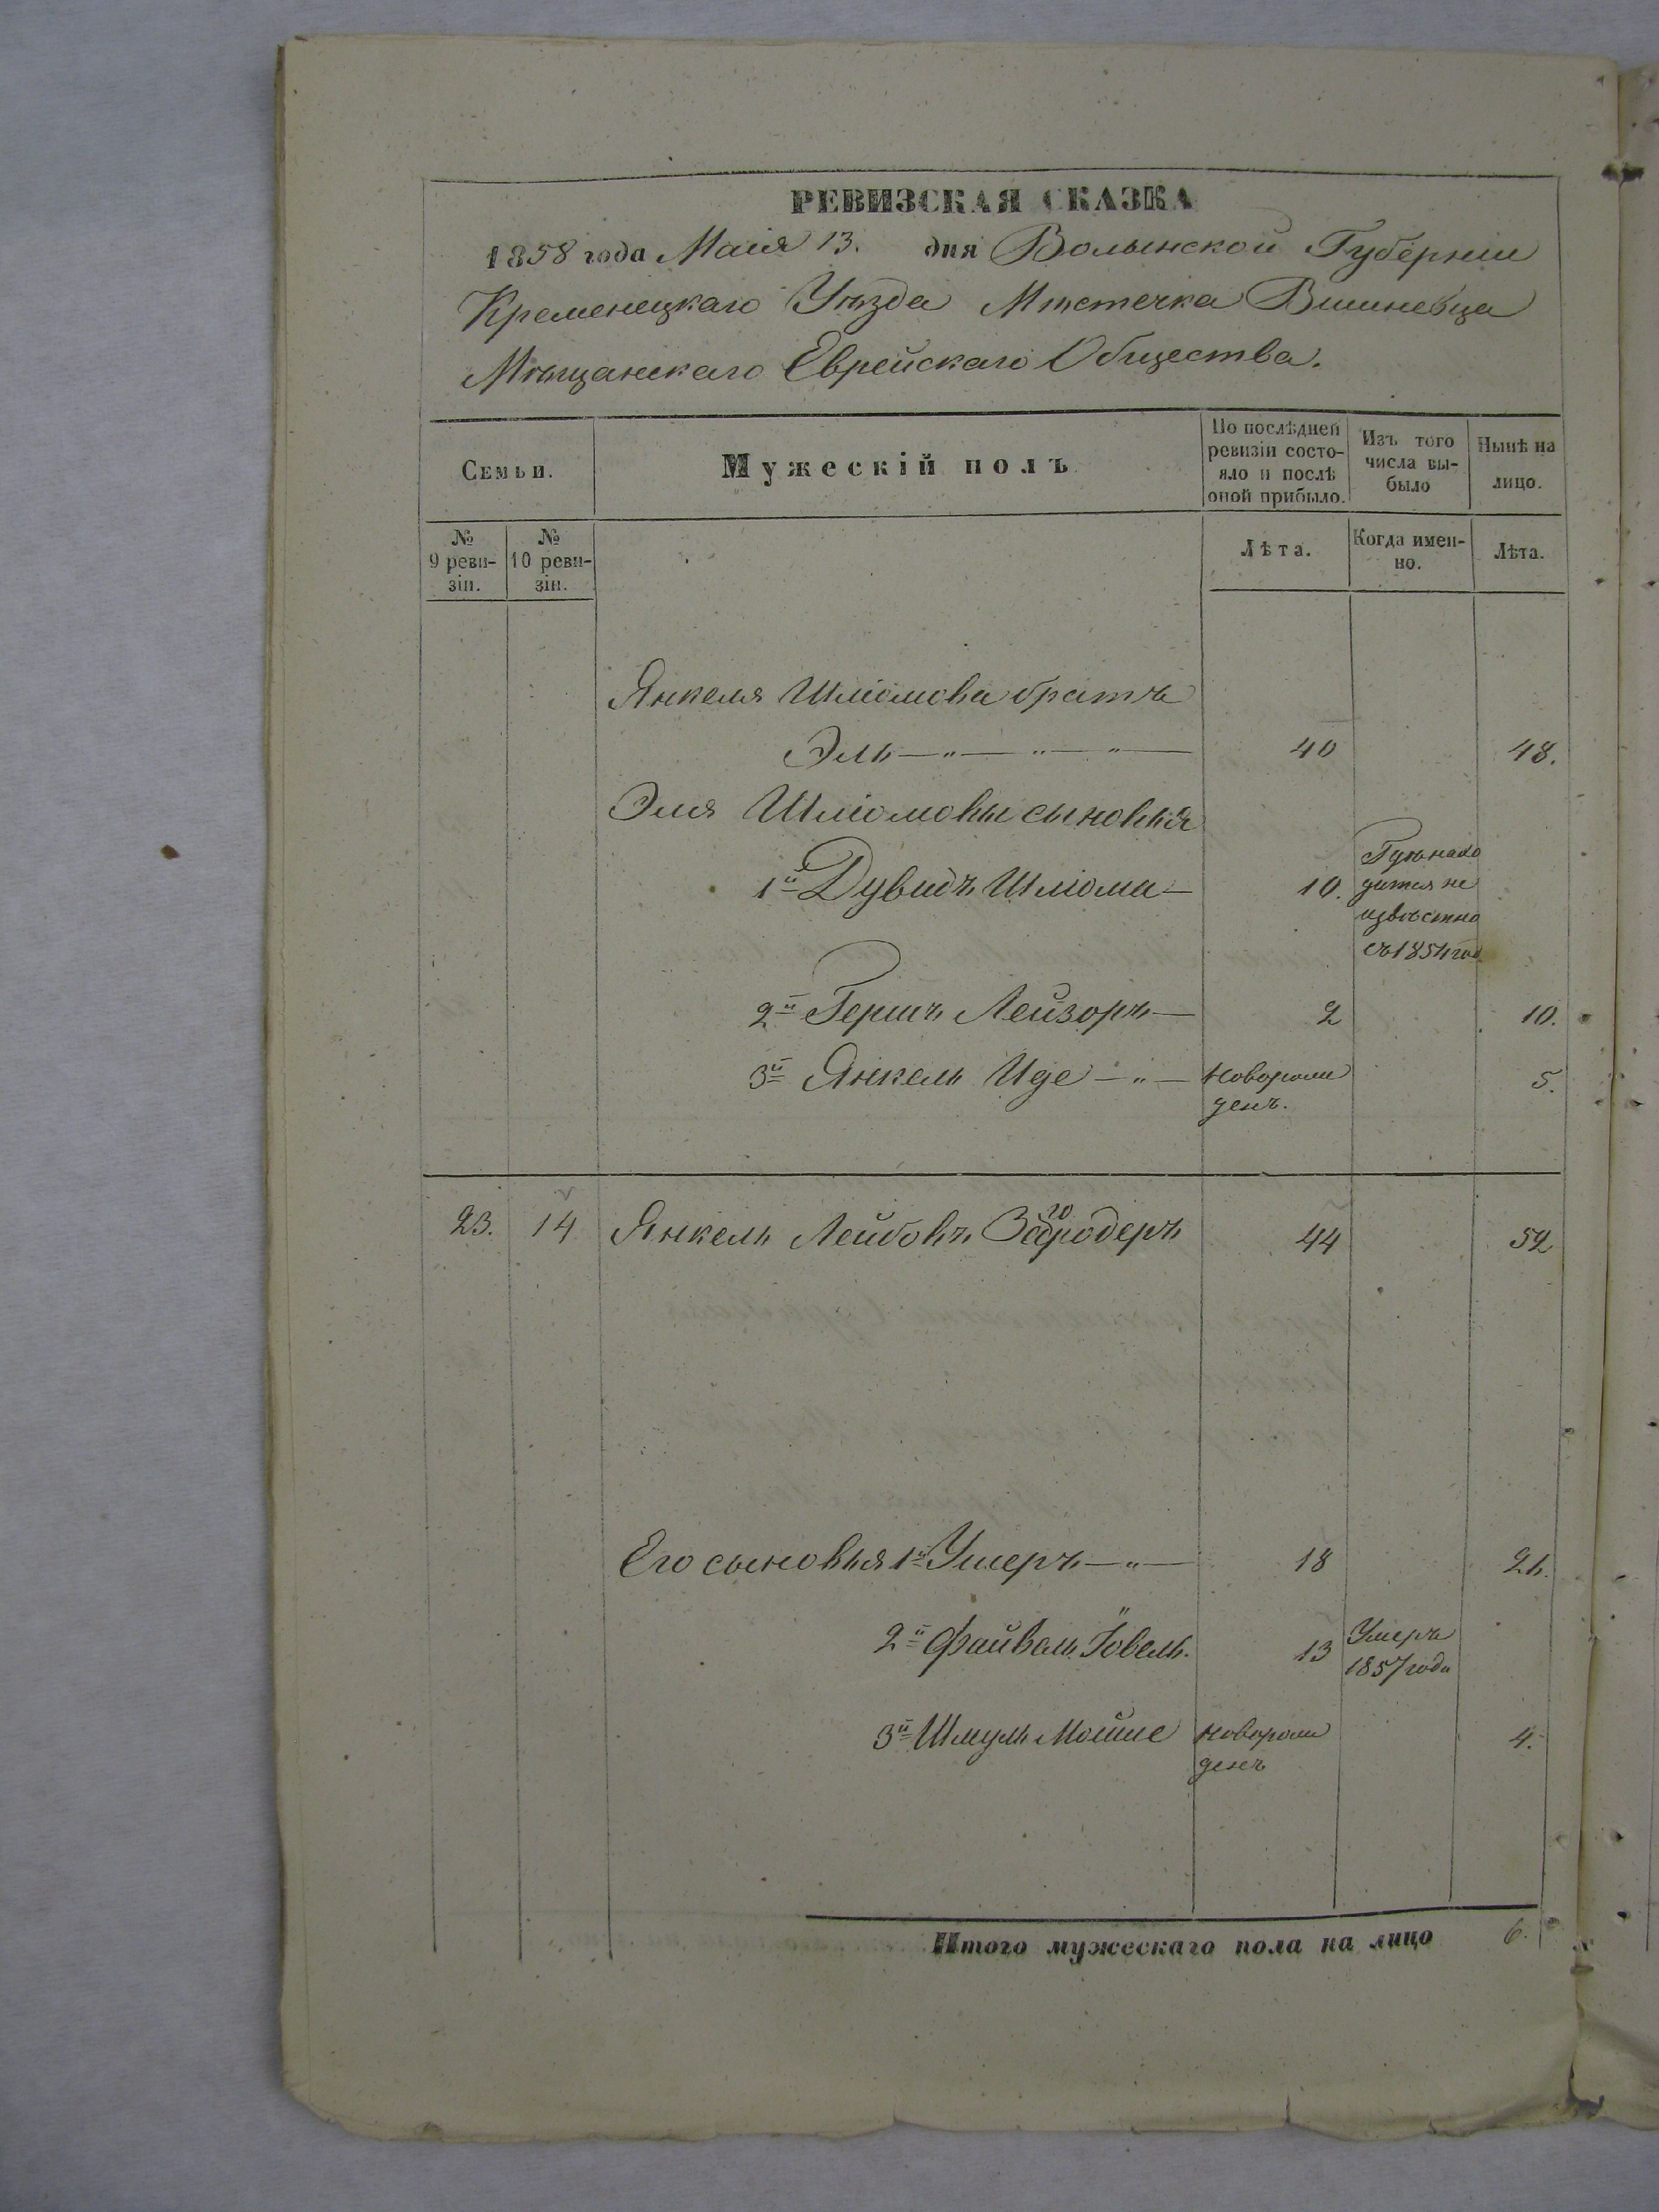 РЕВИЗСКАЯ СКАЗКА
1858 года Маія 13. дня Волынской Губерніи
Кременецкаго Уѣзда Мѣстечка Вишневца
Мѣщанскаго Еврейскаго Общества.
Семьи.
Мужескій полъ
По послѣдней ревизіи состояло и послѣ оной прибыло.
Изъ того числа выбыло
Нынѣ на лицо.
№ 9 ревизіи.
№ 10 ревизіи.
Лѣта.
Когда именно.
Лѣта.
Янкеля Шліомова братъ
Эль — " — " — " — 40 48.
Эля Шліомовы сыновья
1й Дувидъ Шліома — 10. Гдѣ находится не извѣстно съ 1854 год
2й Гершъ Лейзоръ — 2 10.
3й Янкель Иде — " — новорожденъ. 5.
23. 14 Янкель Лейбовъ 44 52
Его сыновья 1й Ушеръ — " — 18 26.
2й Файвель Іовель. 13 Умеръ 1857 года
3й Шмуль Мойше новорожденъ 4.
Итого мужескаго пола на лицо 6.